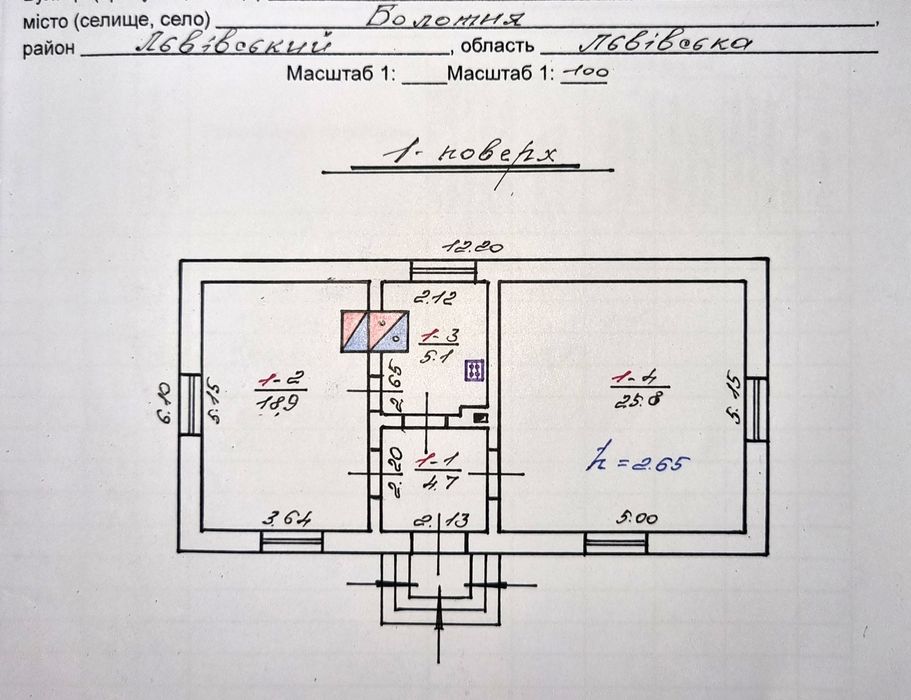 місто (селище, село) Болотня,
район Львівський, область Львівська
Масштаб 1: ____ Масштаб 1: 100
1- поверх
12.20
2.12
1-3
5.1
2.65
6.10
5.15
1-2
18,9
1-4
25.8
5.15
h = 2.65
2.20
1-1
4.7
3.64
2.13
5.00